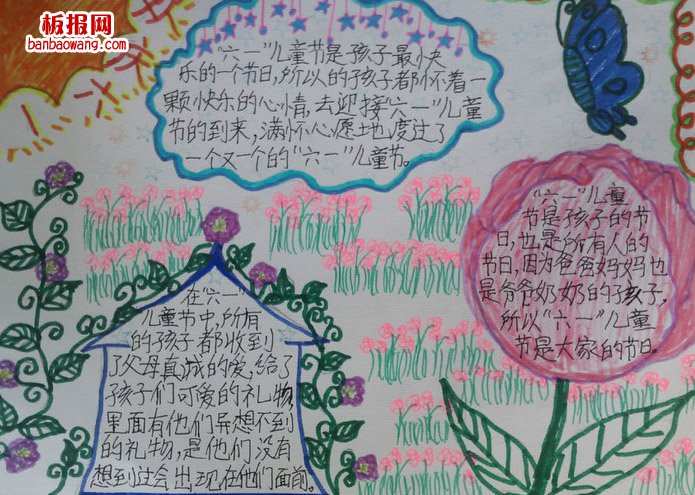 板报网
banbaowang.com
"六一"儿童节是孩子最快
乐的一个节日,所以的孩子都怀着一
颗快乐的心情,去迎接"六一"儿童
节的到来,满怀心愿地度过了
一个又一个的"六一"儿童节。
"六一"儿童
节是孩子的节
日,也是所有人的
节日,因为爸爸妈妈也
是爷爷奶奶的孩子,
所以"六一"儿童
节是大家的节日。
在"六一"
儿童节中,所有
的孩子都收到
了父母真诚的爱,给了
孩子们可爱的礼物,
里面有他们异想不到
的礼物,是他们没有
想到这会出现在他们面前。